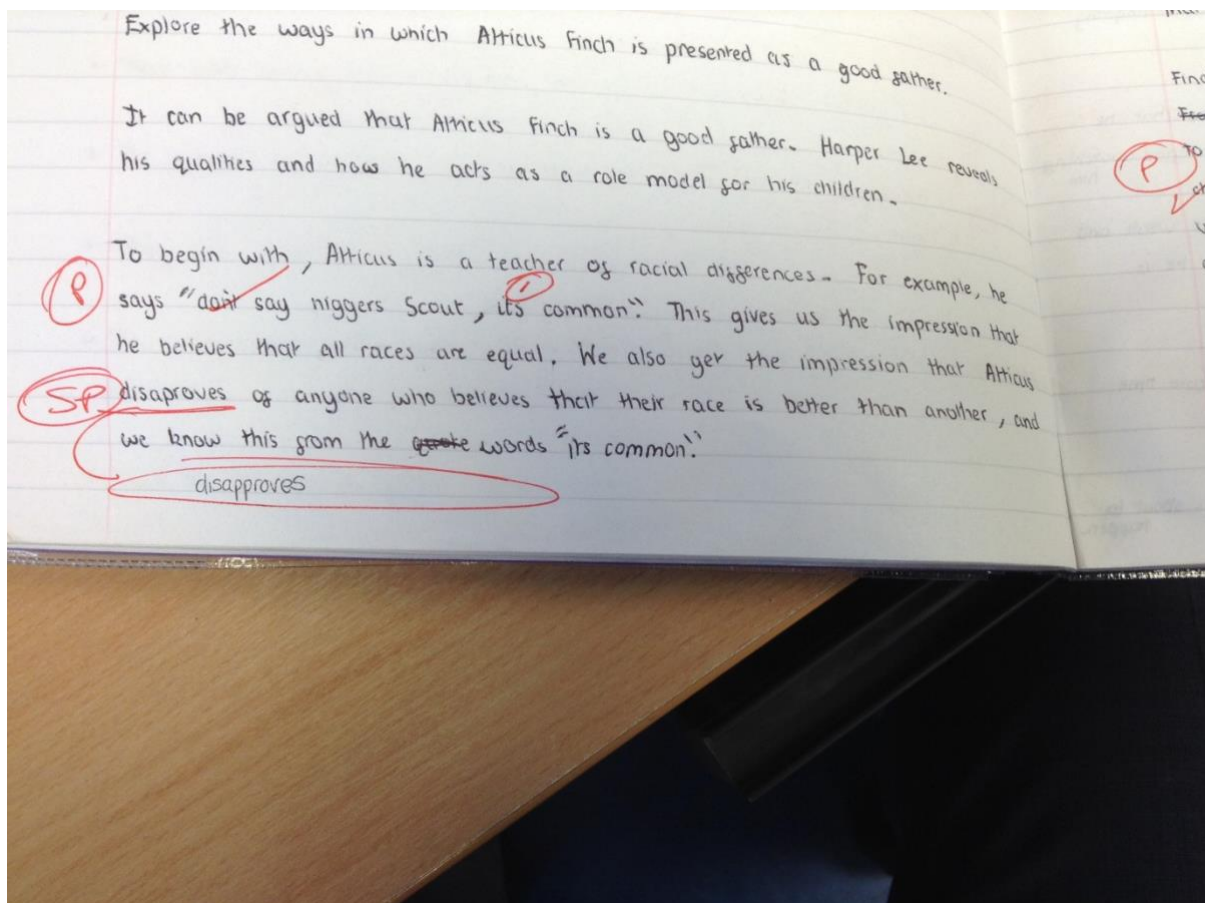 Explore the ways in which Atticus Finch is presented as a good father.
It can be argued that Atticus Finch is a good father. Harper Lee reveals
his qualities and how he acts as a role model for his children.
To begin with, Atticus is a teacher of racial differences. For example, he
P
says "don't say niggers Scout, it's common". This gives us the impression that
he believes that all races are equal. We also get the impression that Atticus
SP
disaproves of anyone who believes that their race is better than another, and
we know this from the quote words "its common".
disapproves
P